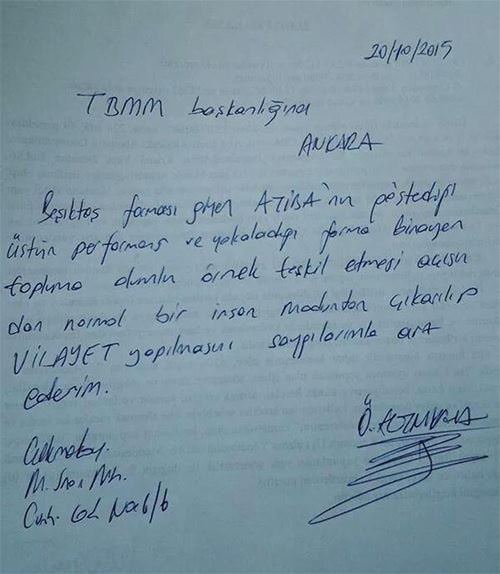 20/10/2015
TBMM başkanlığına
ANKARA
Beşiktaş forması giyen ATİBA'nın gösterdiği
üstün performans ve yakaladığı forma binayen
topluma olumlu örnek teşkil etmesi açısın
dan normal bir insan modundan çıkarılıp
VİLAYET yapılmasını saygılarımla arz
ederim.
Ö.
M. Mh.
No: 6/6